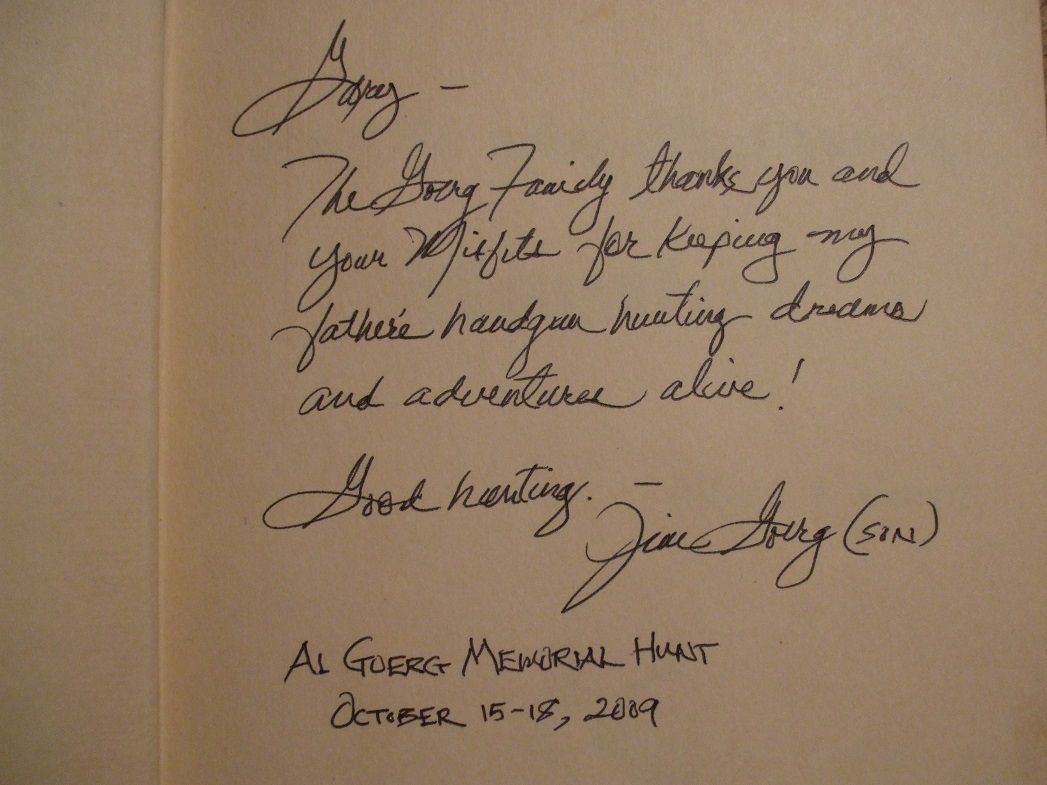 Gary –
The Goerg Family thanks you and
your Misfits for keeping my
father's handgun hunting dreams
and adventures alive!
Good hunting. –
Jim Goerg (SON)
AL GOERG MEMORIAL HUNT
OCTOBER 15-18, 2009